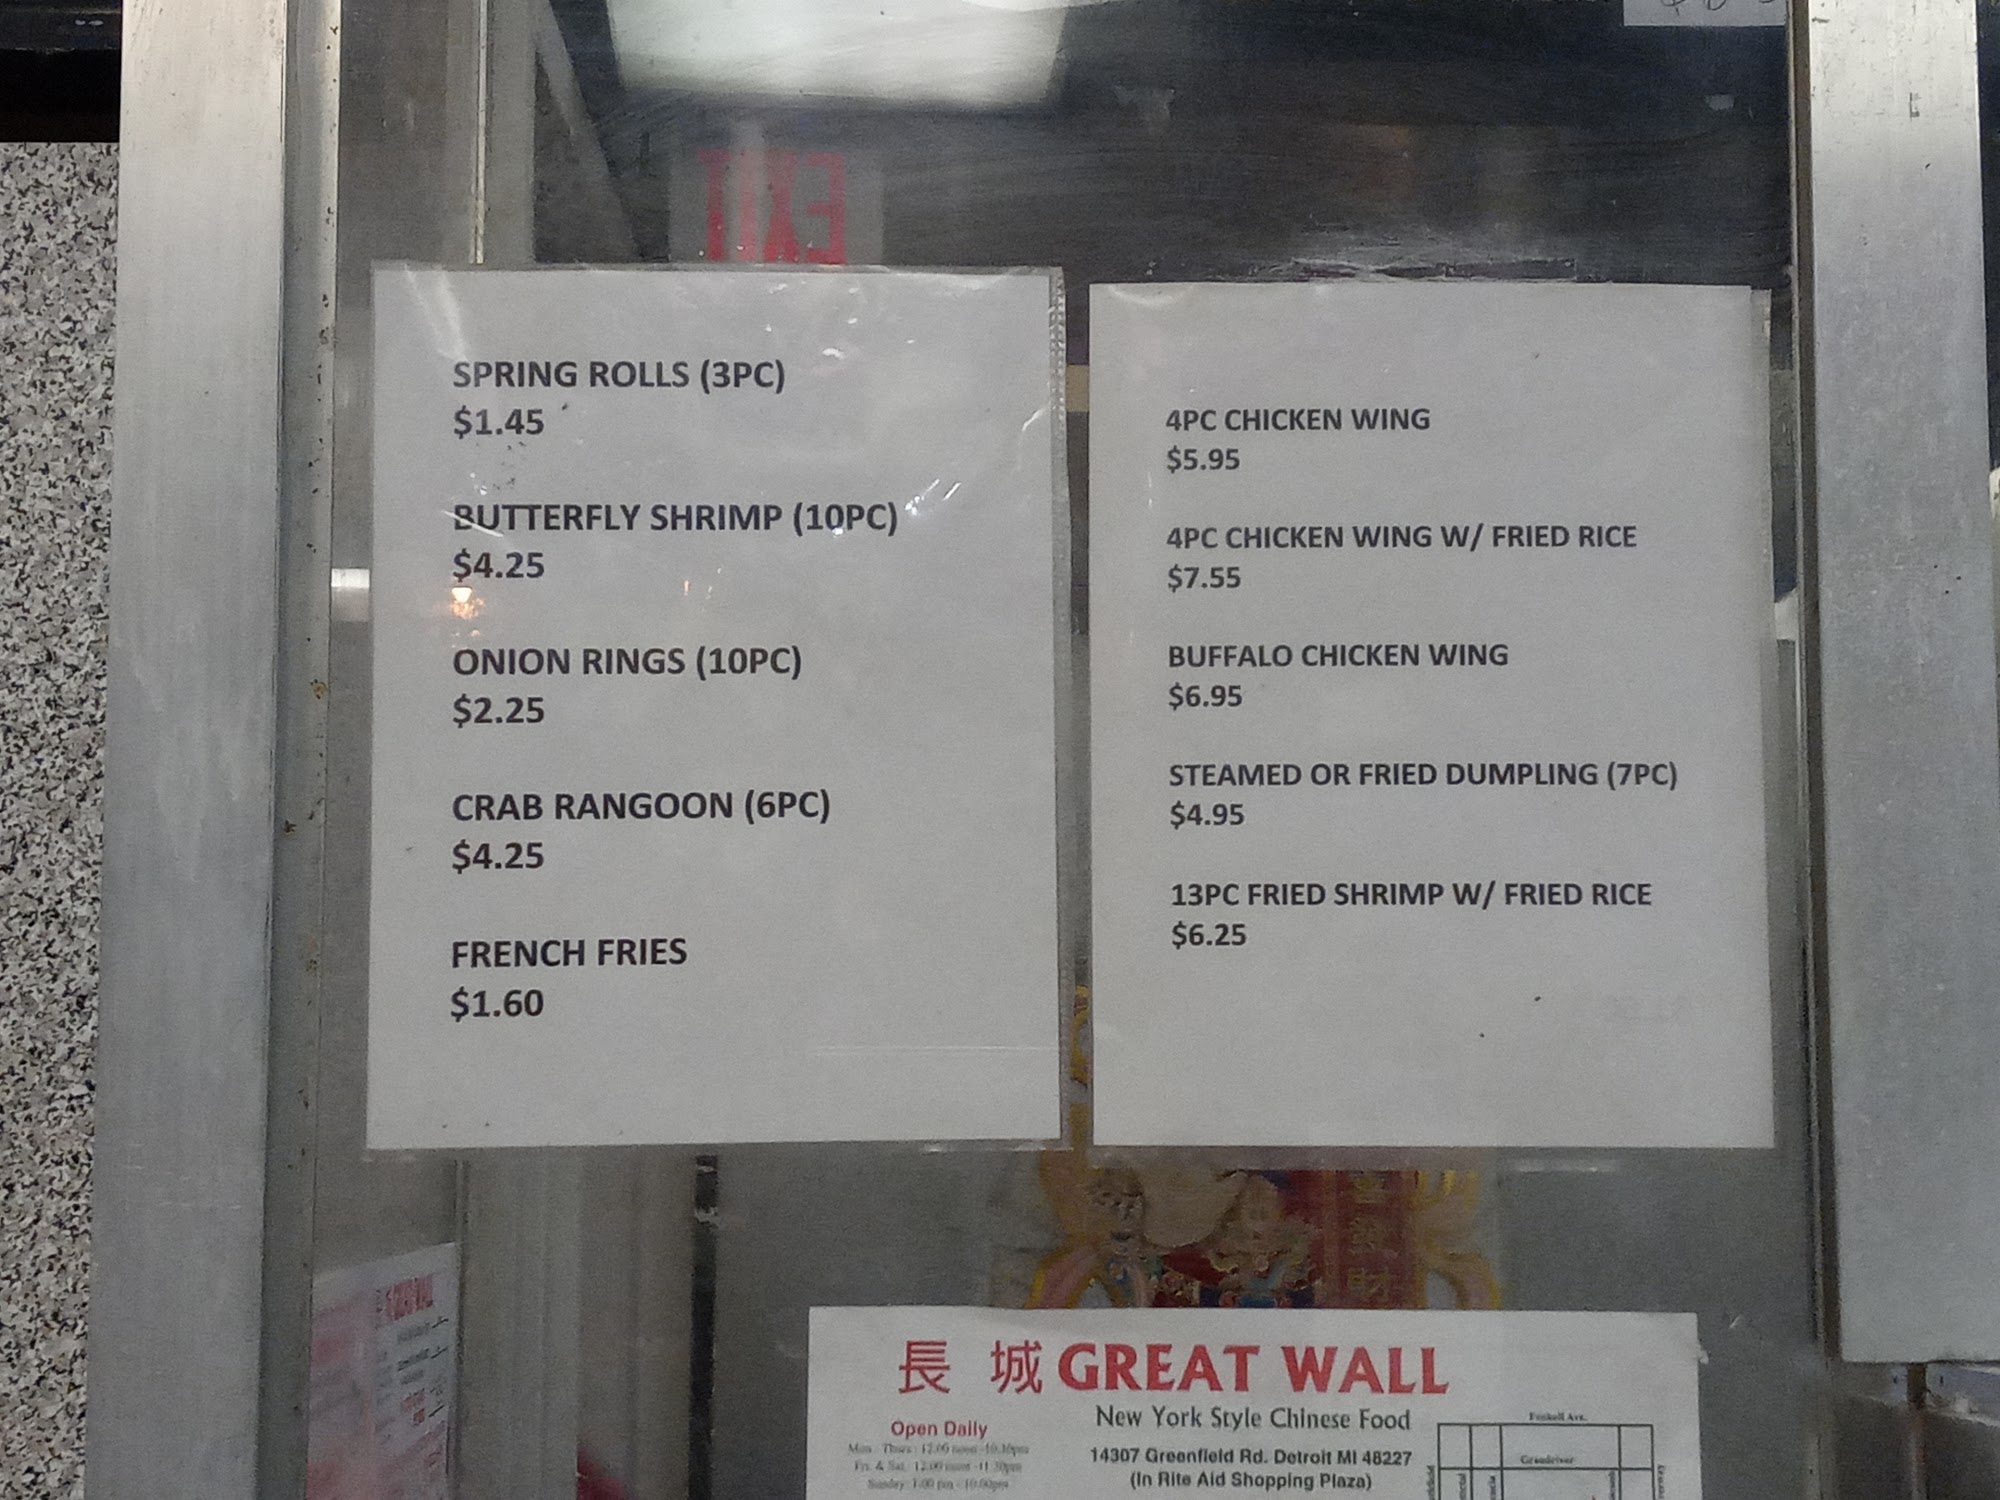 EXIT
SPRING ROLLS (3PC)
$1.45
BUTTERFLY SHRIMP (10PC)
$4.25
ONION RINGS (10PC)
$2.25
CRAB RANGOON (6PC)
$4.25
FRENCH FRIES
$1.60
4PC CHICKEN WING
$5.95
4PC CHICKEN WING W/ FRIED RICE
$7.55
BUFFALO CHICKEN WING
$6.95
STEAMED OR FRIED DUMPLING (7PC)
$4.95
13PC FRIED SHRIMP W/ FRIED RICE
$6.25
長 城 GREAT WALL
New York Style Chinese Food
14307 Greenfield Rd. Detroit MI 48227
(In Rite Aid Shopping Plaza)
Open Daily
Mon - Thurs: 12:00 noon -10:30pm
Fri. & Sat. 12:00 noon -11:30pm
Sunday: 1:00 pm - 10:00pm